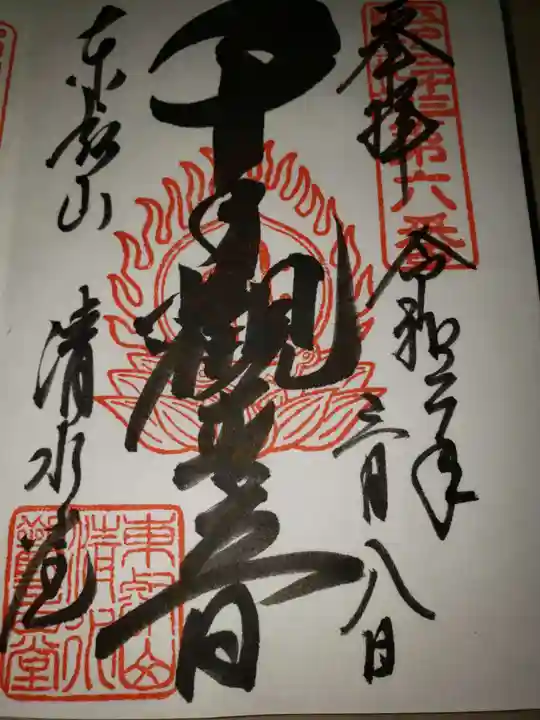 三十三第六番
奉拝
令和二年
三月八日
千手觀世音
東叡山
清水堂
東叡山
清水
堂